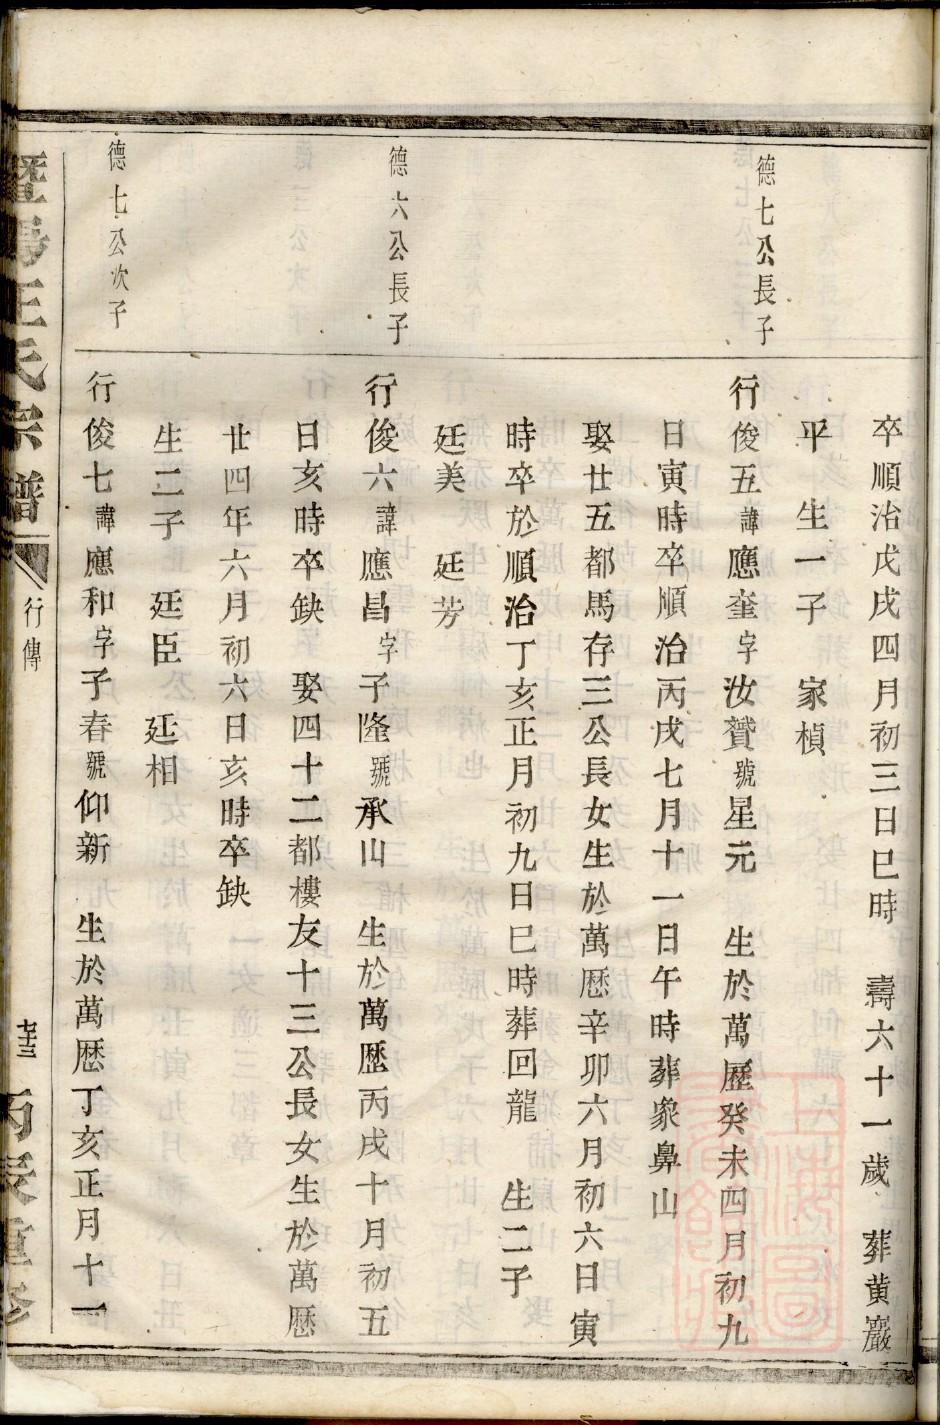 卒順治戊戌四月初三日巳時 壽六十一歲 葬黄巖
平 生一子 家楨
德七公長子
行俊五諱應奎字汝贊號星元 生於萬歷癸未四月初九
日寅時卒順治丙戌七月十一日午時葬象鼻山
娶廿五都馬存三公長女生於萬歷辛卯六月初六日寅
時卒於順治丁亥正月初九日巳時葬回龍 生二子
廷美 廷芳
德六公長子
行俊六諱應昌字子隆號承山 生於萬歷丙戌十月初五
日亥時卒缺 娶四十二都樓友十三公長女生於萬歷
廿四年六月初六日亥時卒缺
生二子 廷臣 廷相
德七公次子
行俊七諱應和字子春號仰新 生於萬歷丁亥正月十一
暨陽王氏宗譜
行傳
丙辰重修